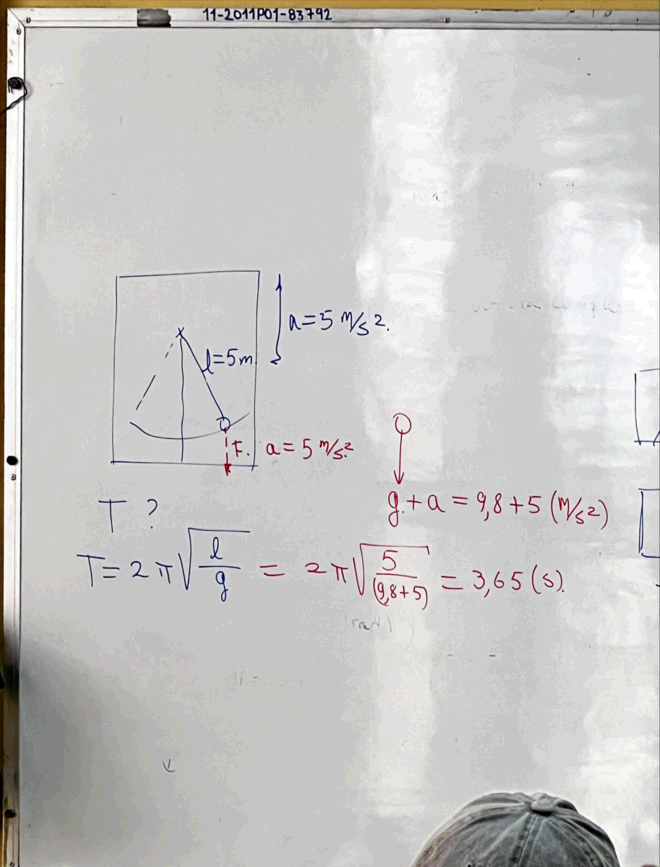 11-2011P01-83792
a=5 m/s2.
l=5m
F. a=5 m/s.2
g.+a=9,8+5 (m/s2)
T ?
T=2π√(l/g) = 2π√(5/(9,8+5)) = 3,65(s).